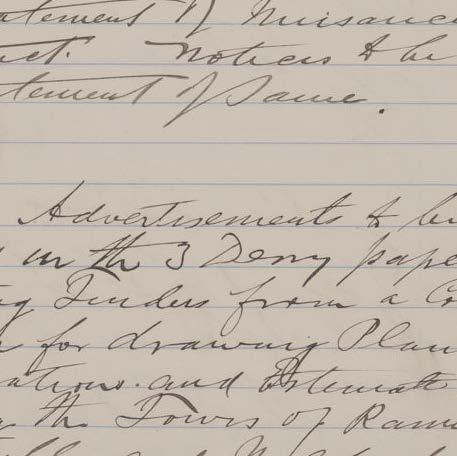 atement of Nuisance
act. Notices to be
tement of Same.
Advertisements to be
in the 3 Derry pape
g Tenders from a Co
for drawing Plan
ations. and Estimate
the Towns of Ram